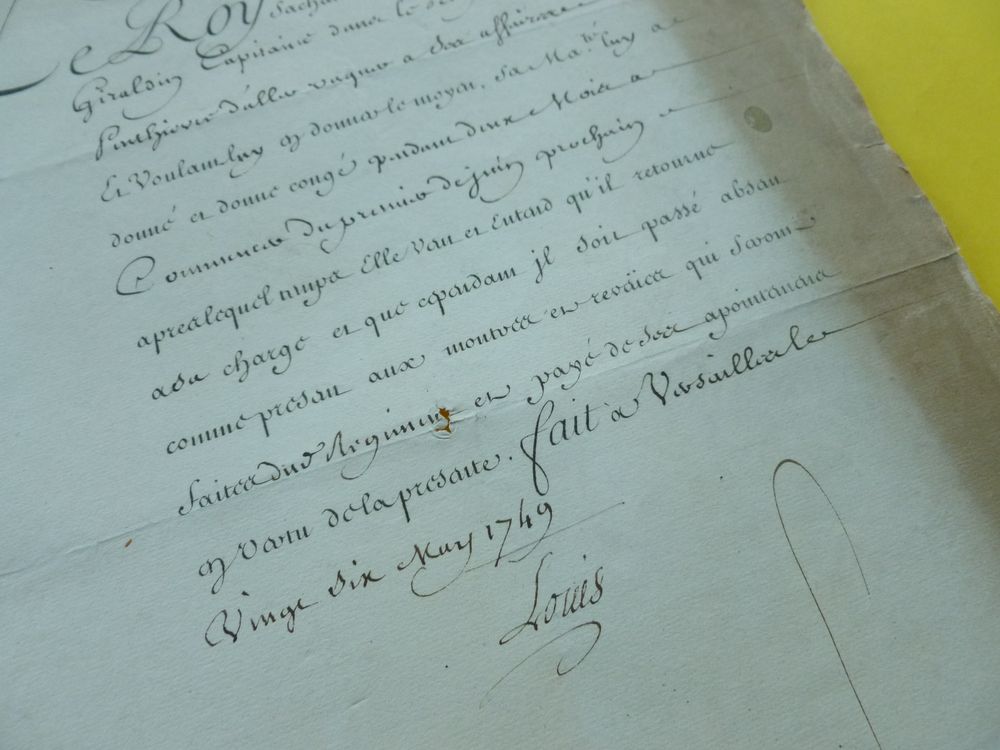 Le Roy sachan
Giraldin Capitaine dans le Re
Penthievre d'aller vaquer a ses affaires
Et Voulant luy en donner le moyen, Sa Ma.té luy a
donné et donne congé pendant deux Mois a
Commencer du premier de juin prochain
apres lequel temps Elle Veut et Entend qu'il retourne
a sa charge et que cependant jl soit passé absent
comme present aux montres et reveües qui seront
faites dud Regiment et payé de ses apointemens
en vertu de la presente. fait a Versailles le
Vingt six May 1749
Louis